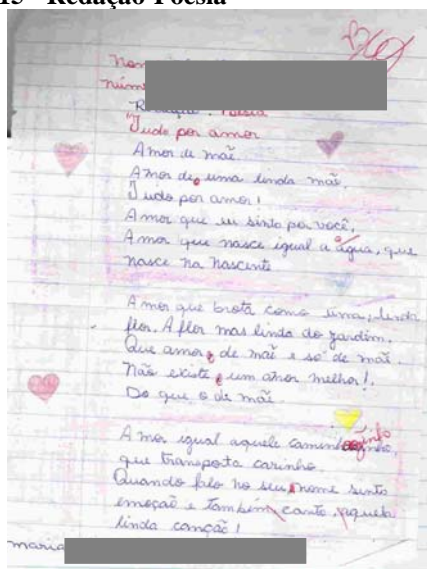 15 - Redação Poesia
Nom
núme
Redação: Poesia
"Tudo por amor
Amor de mãe.
Amor de uma linda mãe.
Tudo por amor!
Amor que eu sinto por você,
Amor que nasce igual a água, que
nasce na nascente
Amor que brota como uma, linda
flor. A flor mas linda do jardim.
Que amor, de mãe e so de mãe.
Não existe, um amor melhor!.
Do que o de mãe.
Amor igual aquele
que transporta carinho.
Quando falo no seu nome sinto
emoção e também canto, aquela
linda canção!
maria